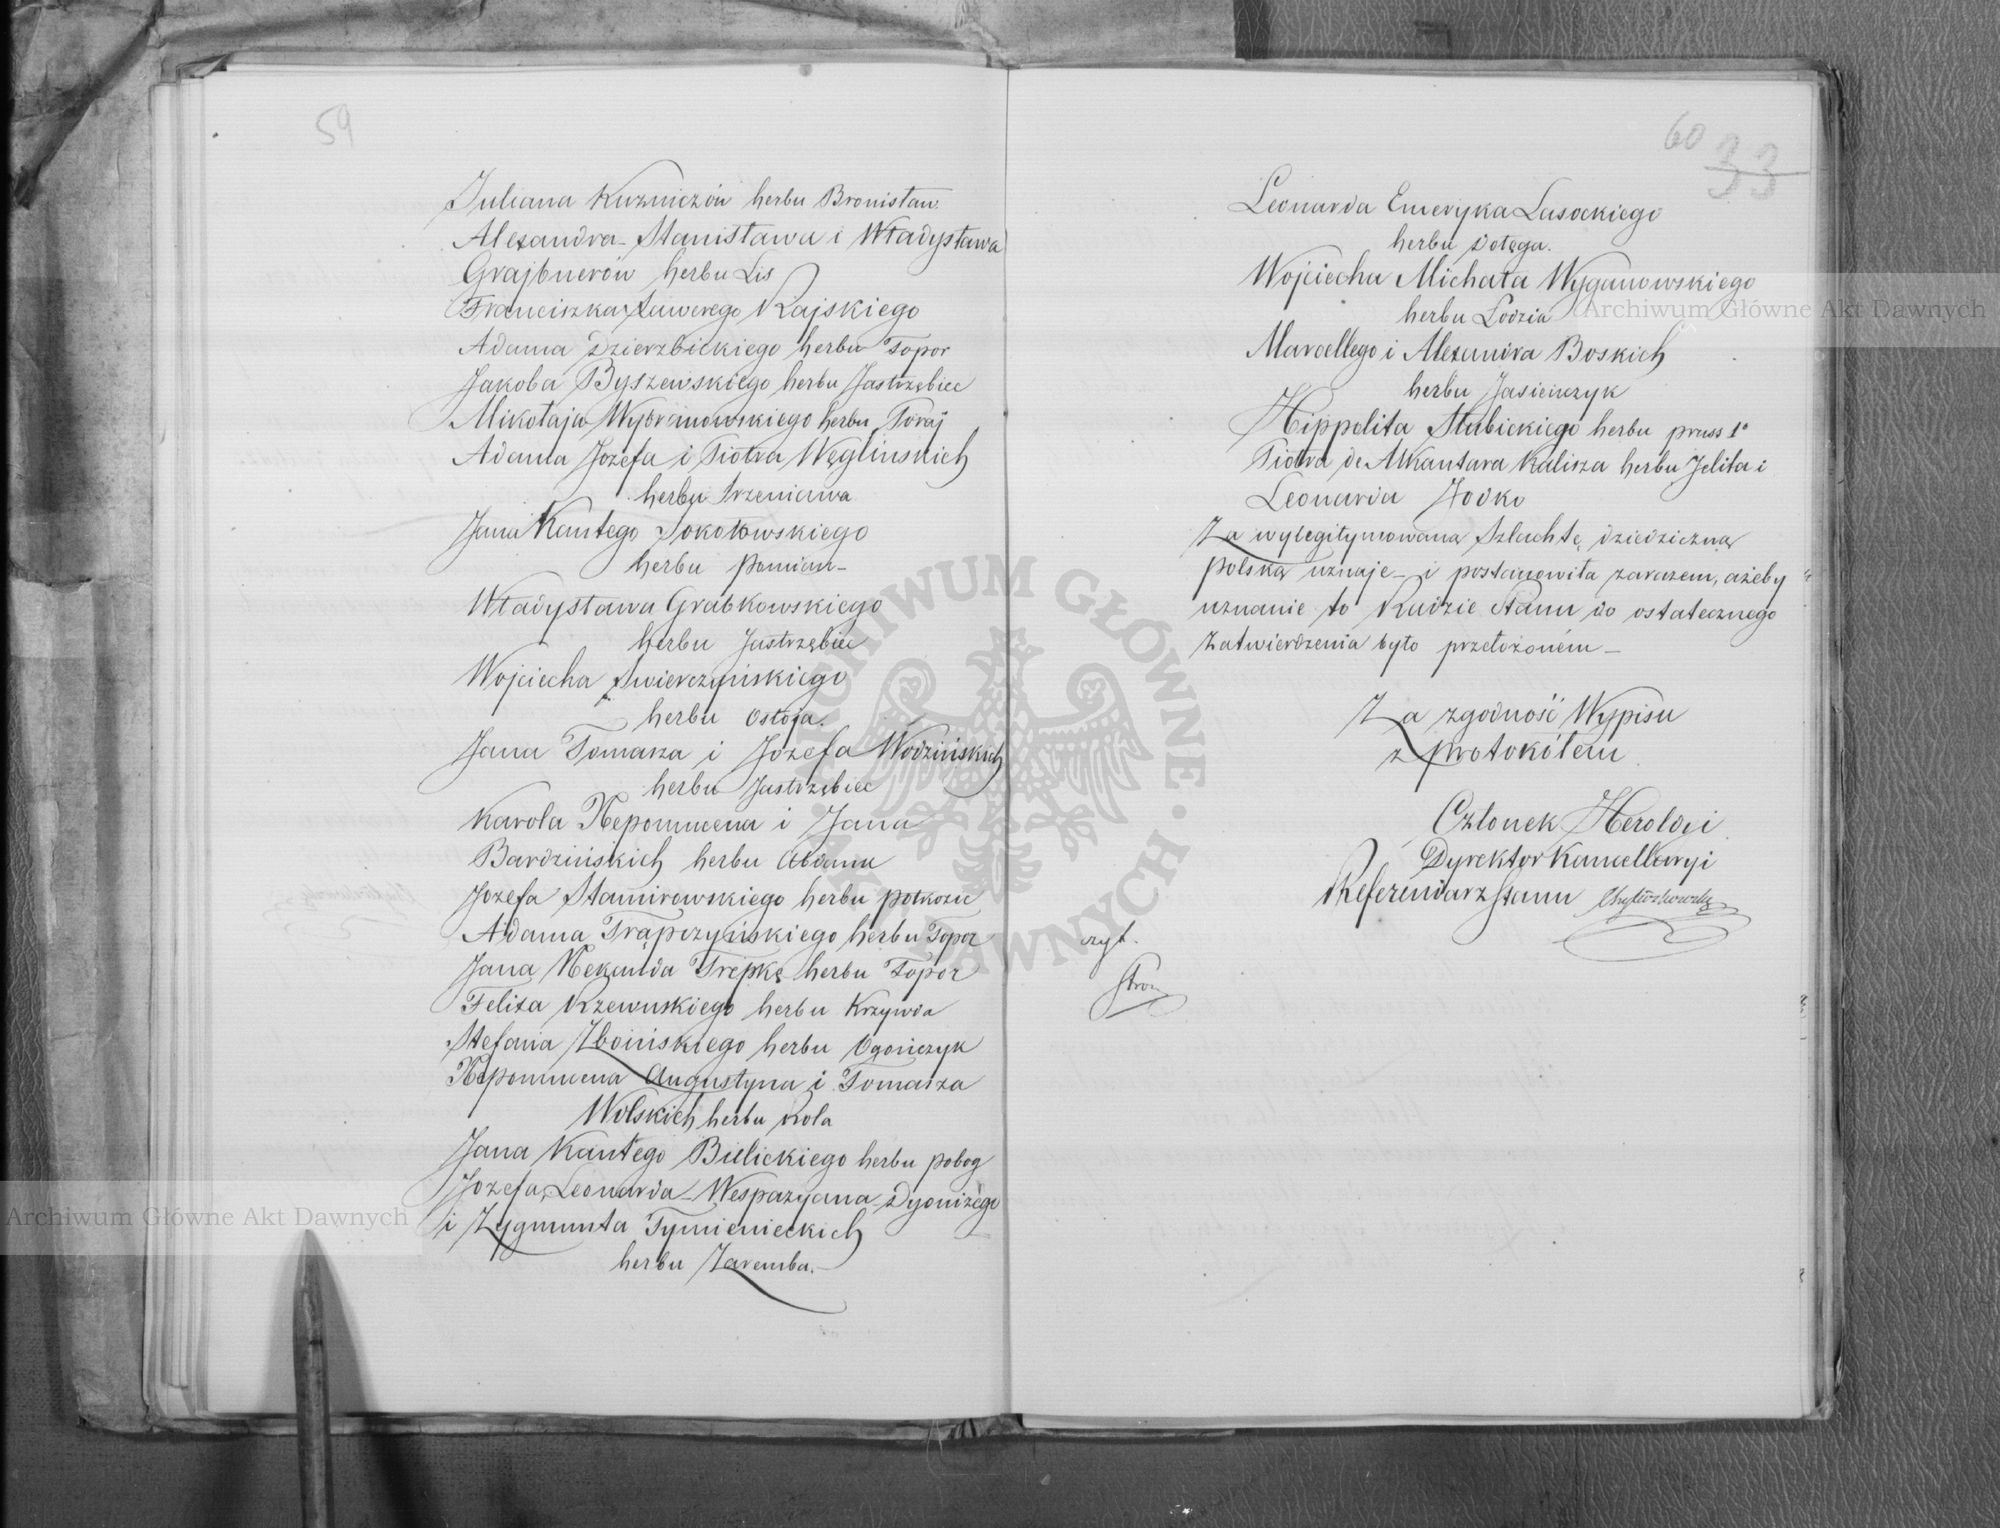 59
Juliana Kuzniczów herbu Bronisław.
Alexandra - Stanisława i Władysława
Grajbnerów herbu Lis
Franciszka Xawerego Rajskiego
Adama Dzierzbickiego herbu Topor
Jakoba Byszewskiego herbu Jastrzębiec
Mikołaja Wybranowskiego herbu Poraj
Adama Jozefa i Piotra Węglińskich
herbu Srzeniawa
Jana Kantego Sokołowskiego
herbu Pomian -
Władysława Grabkowskiego
herbu Jastrzębiec
Wojciecha Swierczyńskiego
herbu Ostoja.
Jana Tomasza i Józefa Wodzińskich
herbu Jastrzębiec
Karola Nepomucena i Jana
Bardzińskich herbu Abdanu
Jozefa Stamirowskiego herbu Połkozic
Adama Trąpczyńskiego herbu Topor
Jana Nekanda Trepkę herbu Topor
Felixa Rzewuskiego herbu Krzywda
Stefana Zboińskiego herbu Ogończyk
Nepomucena Augustyna i Tomasza
Wolskich herbu Rola
Jana Kantego Bielickiego herbu pobog
Jozefa, Leonarda - Wespazyana - Dyonizego
i Zygmunta Tymienieckich
herbu Zaremba. -
60
33
Leonarda Emeryka Lasockiego
herbu Dołęga.
Wojciecha Michała Wyganowskiego
herbu Łodzia
Marcellego i Alexandra Boskich
herbu Jasieńczyk
Hippolita Słubickiego herbu pruss 1º
Piotra de Alkantara Kalisza herbu Jelita i
Leonarda Jodko
Za wylegitymowaną Szlachtę dziedziczną
polską uznaje - i postanowiła zarazem, ażeby
uznanie to Radzie Stanu do ostatecznego
zatwierdzenia było przełożoném -
Za zgodność Wypisu
z protokółem
Członek Heroldyi
Dyrektor Kancellaryi
Referendarz Stanu
czyt.
Archiwum Główne Akt Dawnych
Archiwum Główne Akt Dawnych
ARCHIWUM GŁÓWNE AKT DAWNYCH